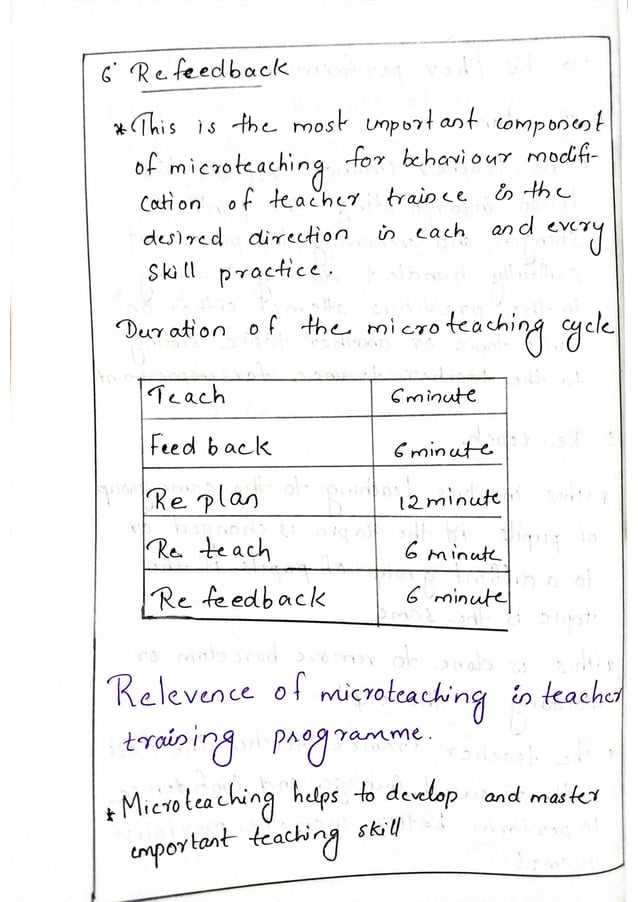 6. Refeedback
* This is the most important component
of microteaching for behaviour modifi-
cation of teacher trainee in the
desired direction in each and every
skill practice.
Duration of the microteaching cycle
Teach 6 minute
Feed back 6 minute
Re plan 12 minute
Re. teach 6 minute
Re feedback 6 minute
Relevence of microteaching in teacher
training programme.
* Microteaching helps to develop and master
important teaching skill